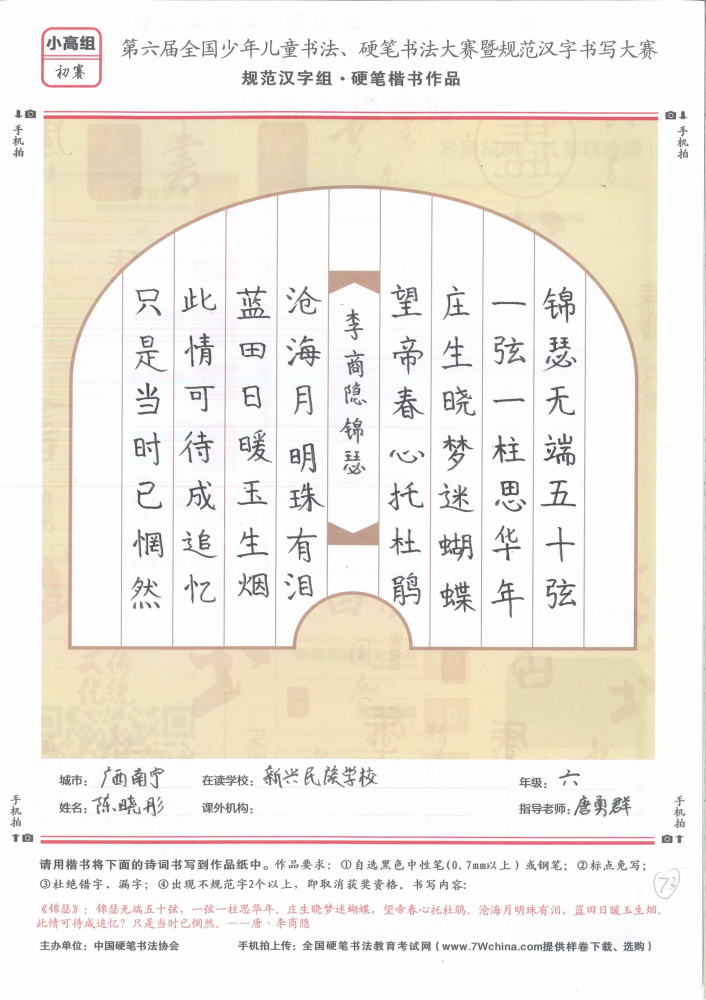 小高组
初赛
第六届全国少年儿童书法、硬笔书法大赛暨规范汉字书写大赛
规范汉字组·硬笔楷书作品
手机拍
手机拍
锦瑟无端五十弦
一弦一柱思华年
庄生晓梦迷蝴蝶
望帝春心托杜鹃
李商隐锦瑟
沧海月明珠有泪
蓝田日暖玉生烟
此情可待成追忆
只是当时已惘然
城市：广西南宁 在读学校：新兴民族学校 年级：六
姓名：陈晓彤 课外机构： 指导老师：唐勇群
手机拍
手机拍
请用楷书将下面的诗词书写到作品纸中。作品要求：①自选黑色中性笔(0.7mm以上)或钢笔；②标点免写；
③杜绝错字、漏字；④出现不规范字2个以上，即取消获奖资格。书写内容：
73
《锦瑟》：锦瑟无端五十弦，一弦一柱思华年。庄生晓梦迷蝴蝶，望帝春心托杜鹃。沧海月明珠有泪，蓝田日暖玉生烟。
此情可待成追忆？只是当时已惘然。——唐·李商隐
主办单位：中国硬笔书法协会 手机拍上传：全国硬笔书法教育考试网（www.7Wchina.com提供样卷下载、选购）